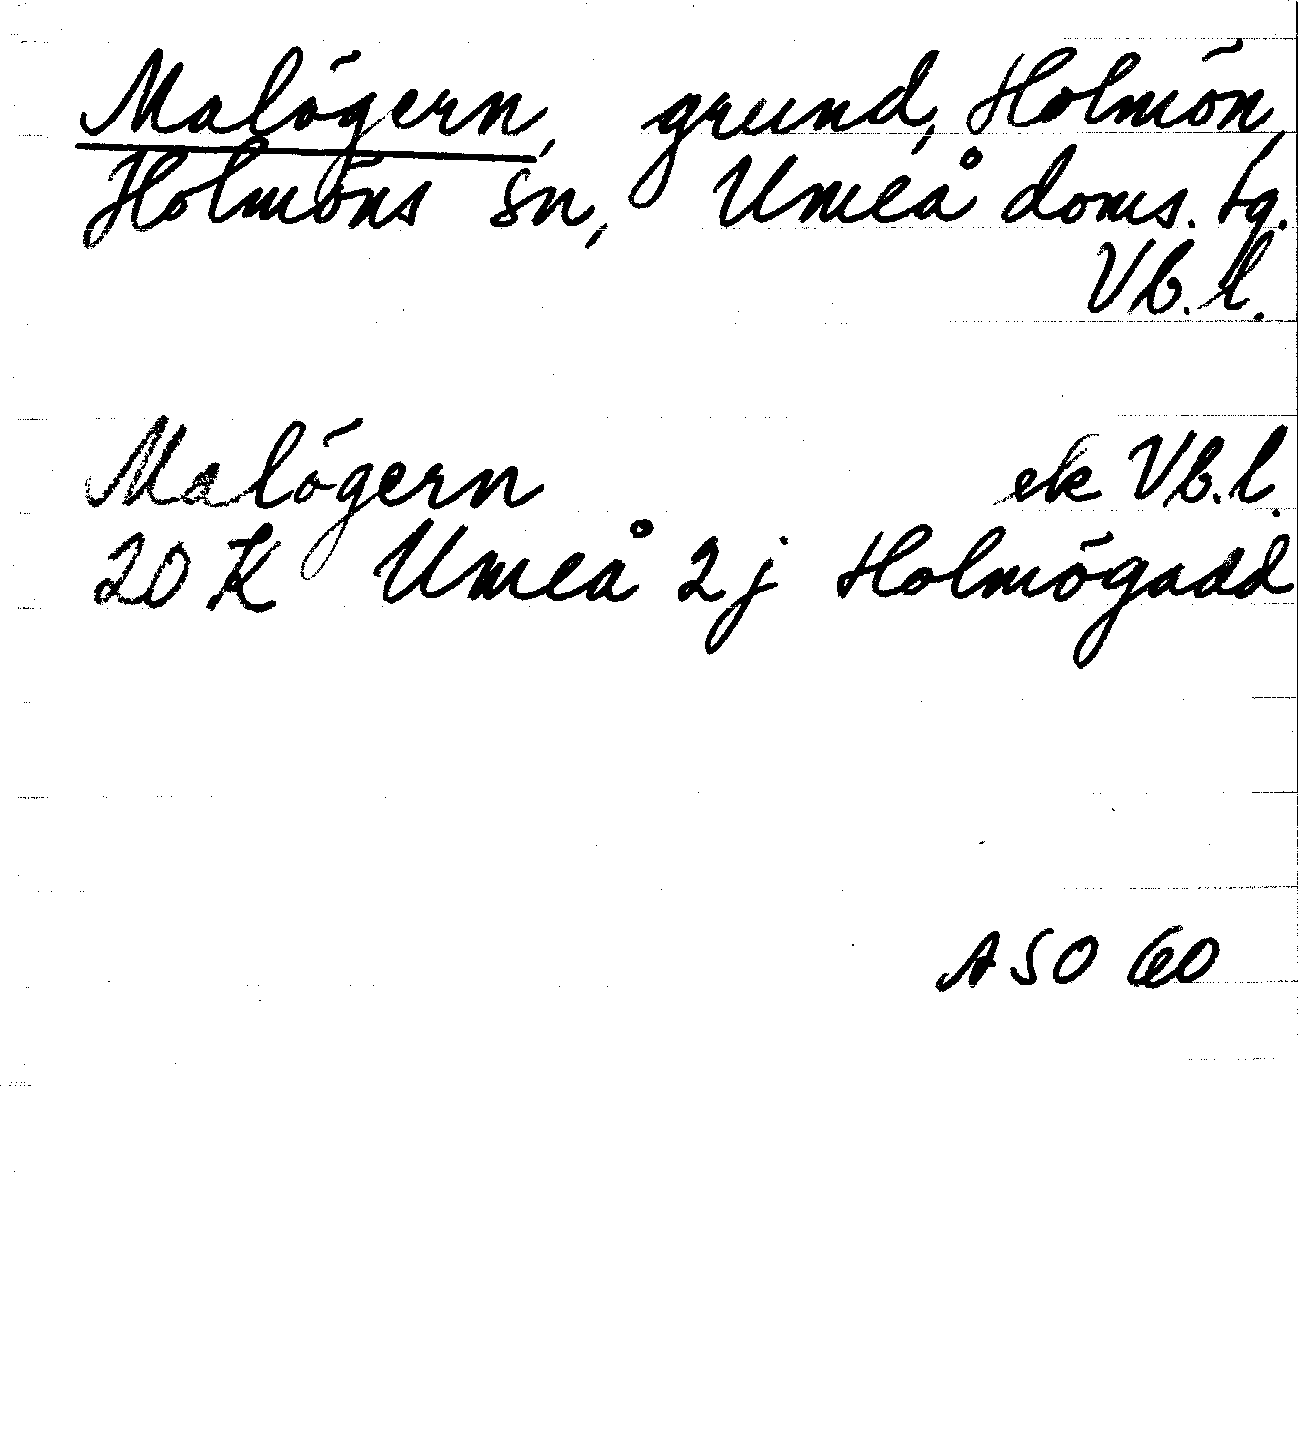 Malögern, grund, Holmön,
Holmöns sn, Umeå doms. tg.
Vb. l.
Malögern ek Vb. l.
20 K Umeå 2 j Holmögadd
ASO 60